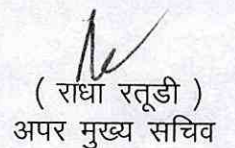 ( राधा रतूडी )
अपर मुख्य सचिव